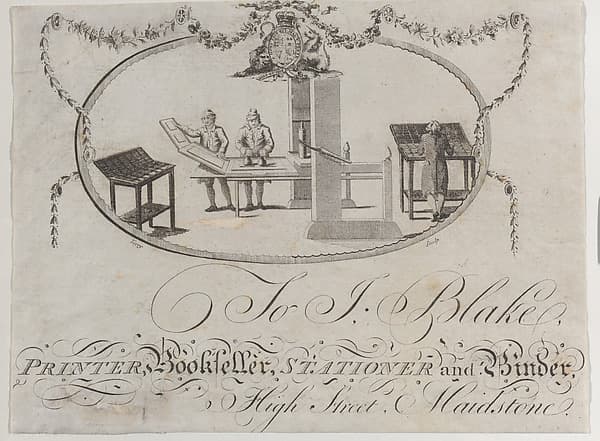 To J. Blake,
PRINTER, Bookſeller, STATIONER and Binder,
High Street. Maidstone.